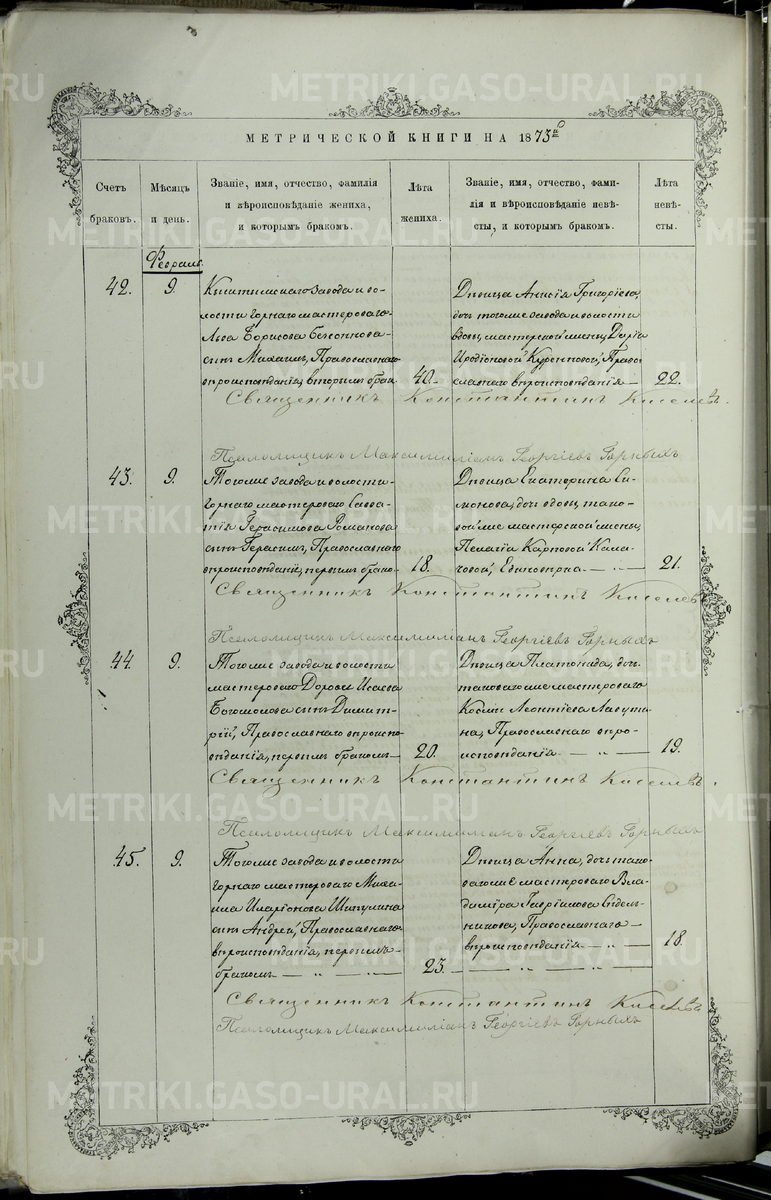 МЕТРИЧЕСКОЙ КНИГИ НА 1875го
Счетъ браковъ.
Мѣсяцъ и день.
Званіе, имя, отчество, фамилія и вѣроисповѣданіе жениха, и которымъ бракомъ.
Лѣта жениха.
Званіе, имя, отчество, фамилія и вѣроисповѣданіе невѣсты, и которымъ бракомъ.
Лѣта невѣсты.
Февраль.
42.
9.
завода и во-
лости горнаго мастероваго
Льва Борисова
сынъ Михаилъ, Православнаго
вѣроисповѣданія, вторымъ брак.
40.
Дѣвица Анисія Григоріева,
дочь тогоже завода и волости
вдовы, мастерской жены, Дарьи
Иродіоновой, Право-
славнаго вѣроисповѣданія —
22.
Священникъ Константинъ Киселевъ.
Псаломщикъ Максимиліанъ Георгіевъ Горныхъ
43.
9.
Тогоже завода и волости
горнаго мастероваго Савва-
тія Герасимова Романова
сынъ Герасимъ, Православнаго
вѣроисповѣданія, первымъ брако-
18.
Дѣвица Екатерина Си-
монова, дочь вдовы тако-
войже мастерской жены,
Пелагіи Карповой Кала-
човой, Единовѣрка — " —
21.
Священникъ Константинъ Киселевъ
Псаломщикъ Максимиліанъ Георгіевъ Горныхъ
44.
9.
Тогоже завода и волости
мастероваго Исаева
Богомолова сынъ Димит-
рій, Православнаго вѣроиспо-
вѣданія, первымъ бракомъ —
20.
Дѣвица Платонида, дочь
таковагоже мастероваго
Космы Леонтіева Лагути-
на, Православнаго вѣро-
исповѣданія — " —
19.
Священникъ Константинъ Киселевъ.
Псаломщикъ Максимиліанъ Георгіевъ Горныхъ
45.
9.
Тогоже завода и волости
горнаго мастероваго Михаи-
ла Иларіонова Шапулина
сынъ Андрей, Православнаго
вѣроисповѣданія, первымъ
бракомъ — " — " —
23.
Дѣвица Анна, дочь тако-
вагоже мастероваго Вла-
диміра Гавріилова Сѣдель-
никова, Православнаго —
вѣроисповѣданія — " —
18.
Священникъ Константинъ Киселевъ
Псаломщикъ Максимиліанъ Георгіевъ Горныхъ
METRIKI.GASO-URAL.RU